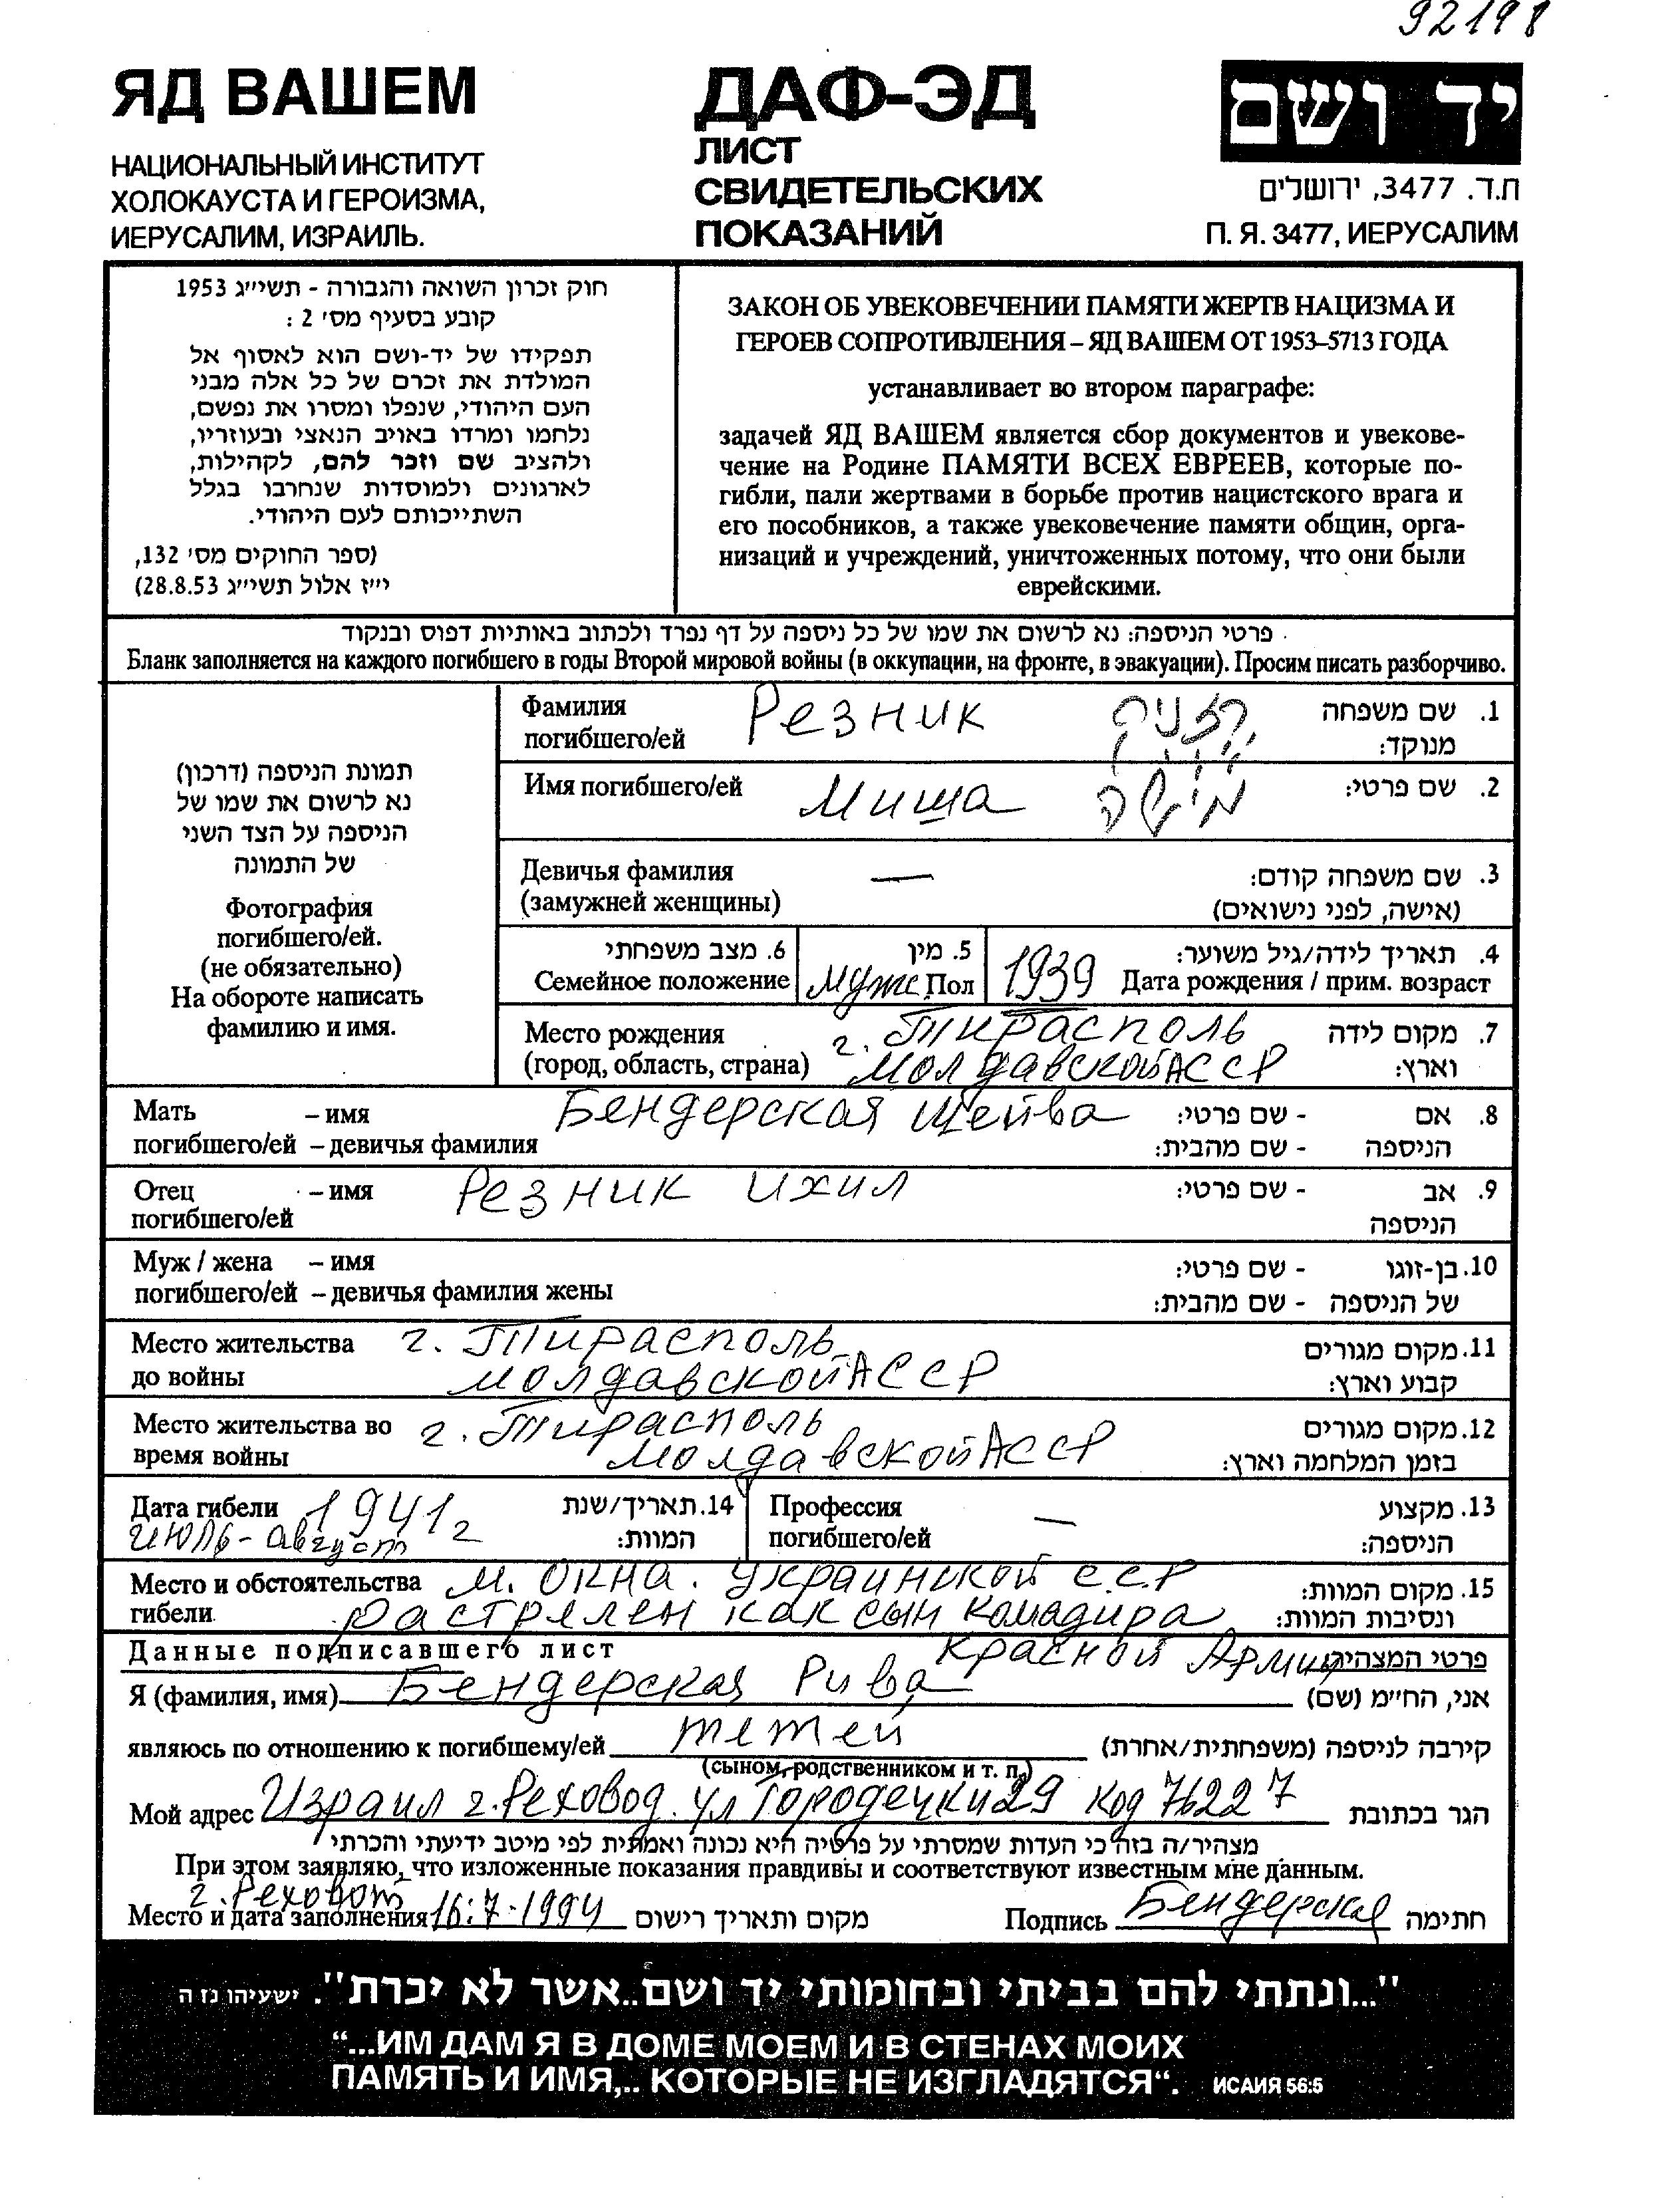 92198
ЯД ВАШЕМ
НАЦИОНАЛЬНЫЙ ИНСТИТУТ
ХОЛОКАУСТА И ГЕРОИЗМА,
ИЕРУСАЛИМ, ИЗРАИЛЬ.
ДАФ-ЭД
ЛИСТ
СВИДЕТЕЛЬСКИХ
ПОКАЗАНИЙ
יד ושם
ת.ד. 3477, ירושלים
П. Я. 3477, ИЕРУСАЛИМ
חוק זכרון השואה והגבורה - תשי״ג 1953
קובע בסעיף מס׳ 2 :
תפקידו של יד-ושם הוא לאסוף אל
המולדת את זכרם של כל אלה מבני
העם היהודי, שנפלו ומסרו את נפשם,
נלחמו ומרדו באויב הנאצי ובעוזריו,
ולהציב שם וזכר להם, לקהילות,
לארגונים ולמוסדות שנחרבו בגלל
השתייכותם לעם היהודי.
(ספר החוקים מס׳ 132,
י״ז אלול תשי״ג 28.8.53)
ЗАКОН ОБ УВЕКОВЕЧЕНИИ ПАМЯТИ ЖЕРТВ НАЦИЗМА И
ГЕРОЕВ СОПРОТИВЛЕНИЯ – ЯД ВАШЕМ ОТ 1953–5713 ГОДА
устанавливает во втором параграфе:
задачей ЯД ВАШЕМ является сбор документов и увекове-
чение на Родине ПАМЯТИ ВСЕХ ЕВРЕЕВ, которые по-
гибли, пали жертвами в борьбе против нацистского врага и
его пособников, а также увековечение памяти общин, орга-
низаций и учреждений, уничтоженных потому, что они были
еврейскими.
פרטי הניספה: נא לרשום את שמו של כל ניספה על דף נפרד ולכתוב באותיות דפוס ובנקוד
Бланк заполняется на каждого погибшего в годы Второй мировой войны (в оккупации, на фронте, в эвакуации). Просим писать разборчиво.
תמונת הניספה (דרכון)
נא לרשום את שמו של
הניספה על הצד השני
של התמונה
Фотография
погибшего/ей.
(не обязательно)
На обороте написать
фамилию и имя.
Фамилия Резник רזניק 1. שם משפחה
погибшего/ей מנוקד:
Имя погибшего/ей Миша מישה 2. שם פרטי:
Девичья фамилия — 3. שם משפחה קודם:
(замужней женщины) (אישה, לפני נישואים)
6. מצב משפחתי 5. מין 4. תאריך לידה/גיל משוער:
Семейное положение Муже Пол 1939 Дата рождения / прим. возраст
Место рождения г. Тирасполь 7. מקום לידה
(город, область, страна) Молдавской АССР וארץ:
Мать – имя Бендерская Шейва 8. אם - שם פרטי:
погибшего/ей – девичья фамилия הניספה - שם מהבית:
Отец – имя Резник Ихил 9. אב - שם פרטי:
погибшего/ей הניספה
Муж / жена – имя 10. בן-זוגו - שם פרטי:
погибшего/ей – девичья фамилия жены של הניספה - שם מהבית:
Место жительства г. Тирасполь 11. מקום מגורים
до войны Молдавской АССР קבוע וארץ:
Место жительства во г. Тирасполь 12. מקום מגורים
время войны Молдавской АССР בזמן המלחמה וארץ:
Дата гибели 1941 г 14. תאריך/שנת Профессия — 13. מקצוע
июль-август המוות: погибшего/ей הניספה:
Место и обстоятельства м. Окна. Украинской С.С.Р 15. מקום המוות:
гибели. Растрелен как сын комадира ונסיבות המוות:
Данные подписавшего лист Красной Армии פרטי המצהיר:
Я (фамилия, имя) Бендерская Рива אני, הח״מ (שם)
являюсь по отношению к погибшему/ей тетей קירבה לניספה (משפחתית/אחרת)
(сыном, родственником и т. п.)
Мой адрес Израил г. Реховод. ул Городецки 29 код 76227 הגר בכתובת
מצהיר/ה בזה כי העדות שמסרתי על פרטיה היא נכונה ואמתית לפי מיטב ידיעתי והכרתי
При этом заявляю, что изложенные показания правдивы и соответствуют известным мне данным.
г. Реховот
Место и дата заполнения 16.7.1994 מקום ותאריך רישום Подпись Бендерская חתימה
"...ונתתי להם בביתי ובחומותי יד ושם..אשר לא יכרת". ישעיהו נז ה
“...ИМ ДАМ Я В ДОМЕ МОЕМ И В СТЕНАХ МОИХ
ПАМЯТЬ И ИМЯ,.. КОТОРЫЕ НЕ ИЗГЛАДЯТСЯ“. ИСАИЯ 56:5